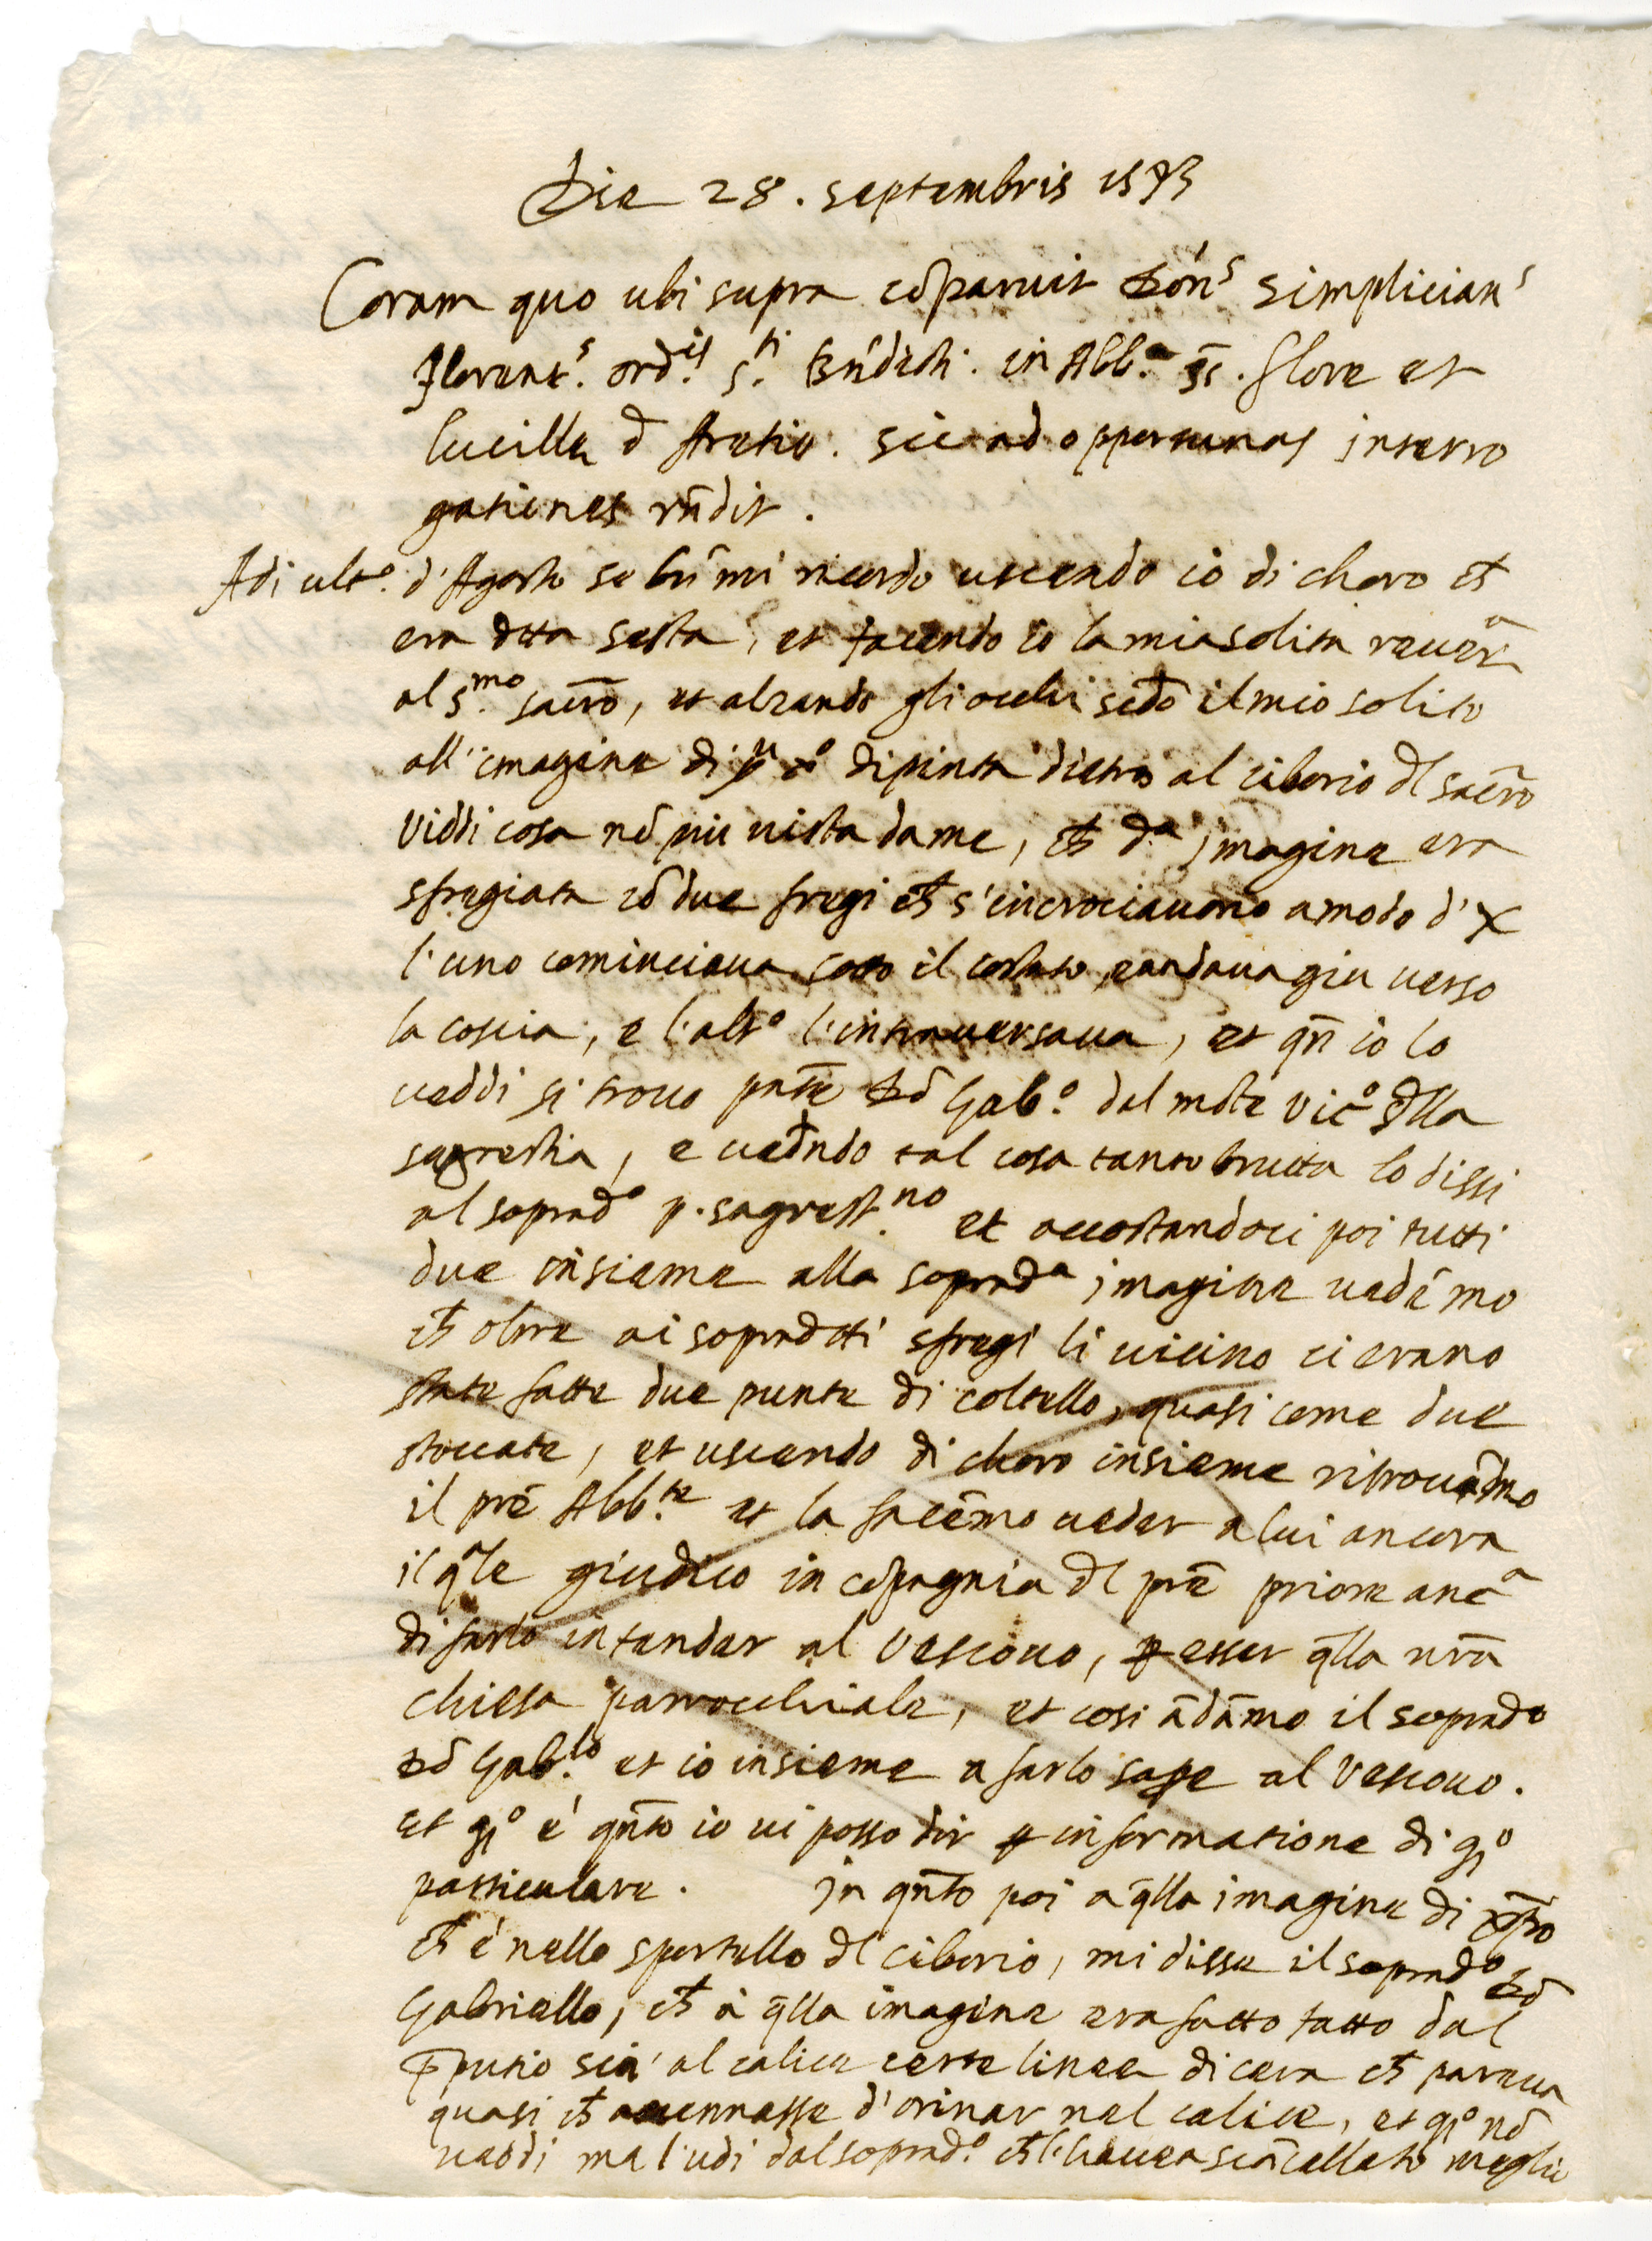 Die 28. septembris 1573
Coram quo ubi supra cōparuit Dōn⁹ Simplician⁹
Florent⁹. ord.ⁱˢ S.ᵗⁱ Bn̄dicti. in Abb.ᵃ SS. Flore et
Lucille d̄ Aretio. sic ad opportunas interro
gationes rn̄dit.
Adi ult.º d'Agosto se bn̄ mi ricordo uscendo io di choro ch̄
era dtta sesta, et facendo io la mia solita reuerᵃ
al S.ᵐᵒ sacr̄o, et alzando gli occhi secd̄o il mio solito
all'imagine di dipinta dietro al ciborio dl sacr̄o
viddi cosa nō piu uista da me, ch̄ d.ᵃ imagine era
sfregiata cō due fregi ch̄ s'incrociauano a modo d'X
l'uno cominciaua sotto il costato e andaua giu uerso
la coscia, e l'altº l'intrauersaua, et qn̄ io lo
ueddi si trouo pn̄te Dō Gab.º dal mōte vicº dlla
sagrestia, e uedn̄do tal cosa tanto brutta lo dissi
al sopradº p. sagrest.ⁿᵒ et accostandoci poi tutti
due insieme alla sopradᵃ imagine uedēmo
ch̄ oltre ai sopradtti sfregi li uicino ci erano
state fatte due punte di coltello, quasi come due
stoccate, et uscendo di choro insieme ritrouām̄o
il pr̄e Abb.ᵗᵉ et la facēmo ueder a lui ancora
il qle giudico in cōpagnia dl pr̄e priore ancᵃ
di farlo intender al Vescouo, ꝑ esser q̄lla nr̄a
chiesa parrochiale, et cosi ādāmo il sopradº
Dō Gab.ˡᵒ et io insieme a farlo saꝑe al Vescouo.
et qº é qn̄to io ui posso dir ꝑ informatione di qº
particulare. In qn̄to poi a q̄lla imagine di
ch̄ é nello sportello dl ciborio, mi disse il sopradº Dō
Gabriello, ch̄ à q̄lla imagine era fatto tatto dal
p̄putio sin' al calice certe linee di cera ch̄ pareua
quasi ch̄ accennasse d'orinar nel calice, et qº nō
ueddi ma l'udi dal soprad.º ch̄ l'haueua scācellato meglio